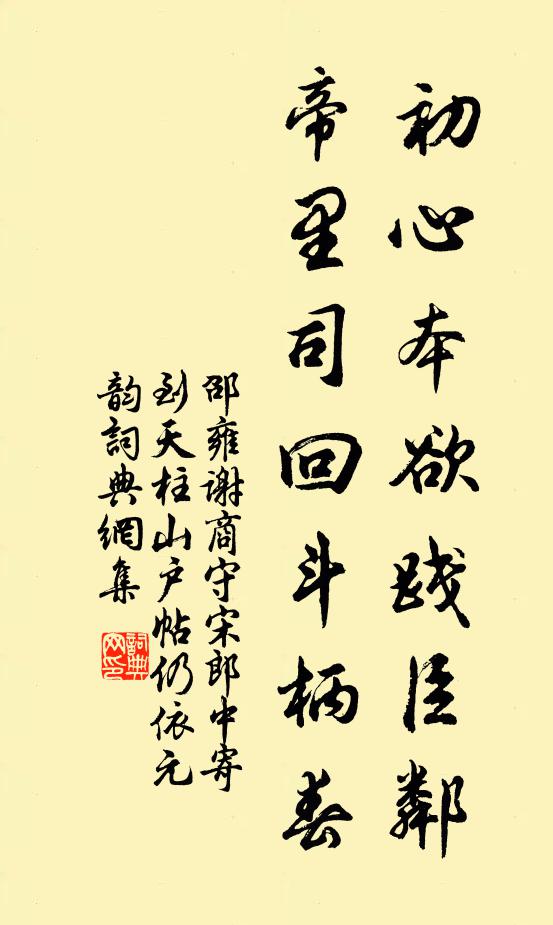 初心本欲践臣鄰
帝里司回斗柄春
邵雍谢商守宋郎中寄
到天柱山户帖仍依元
韵詞典網集
詞典
网